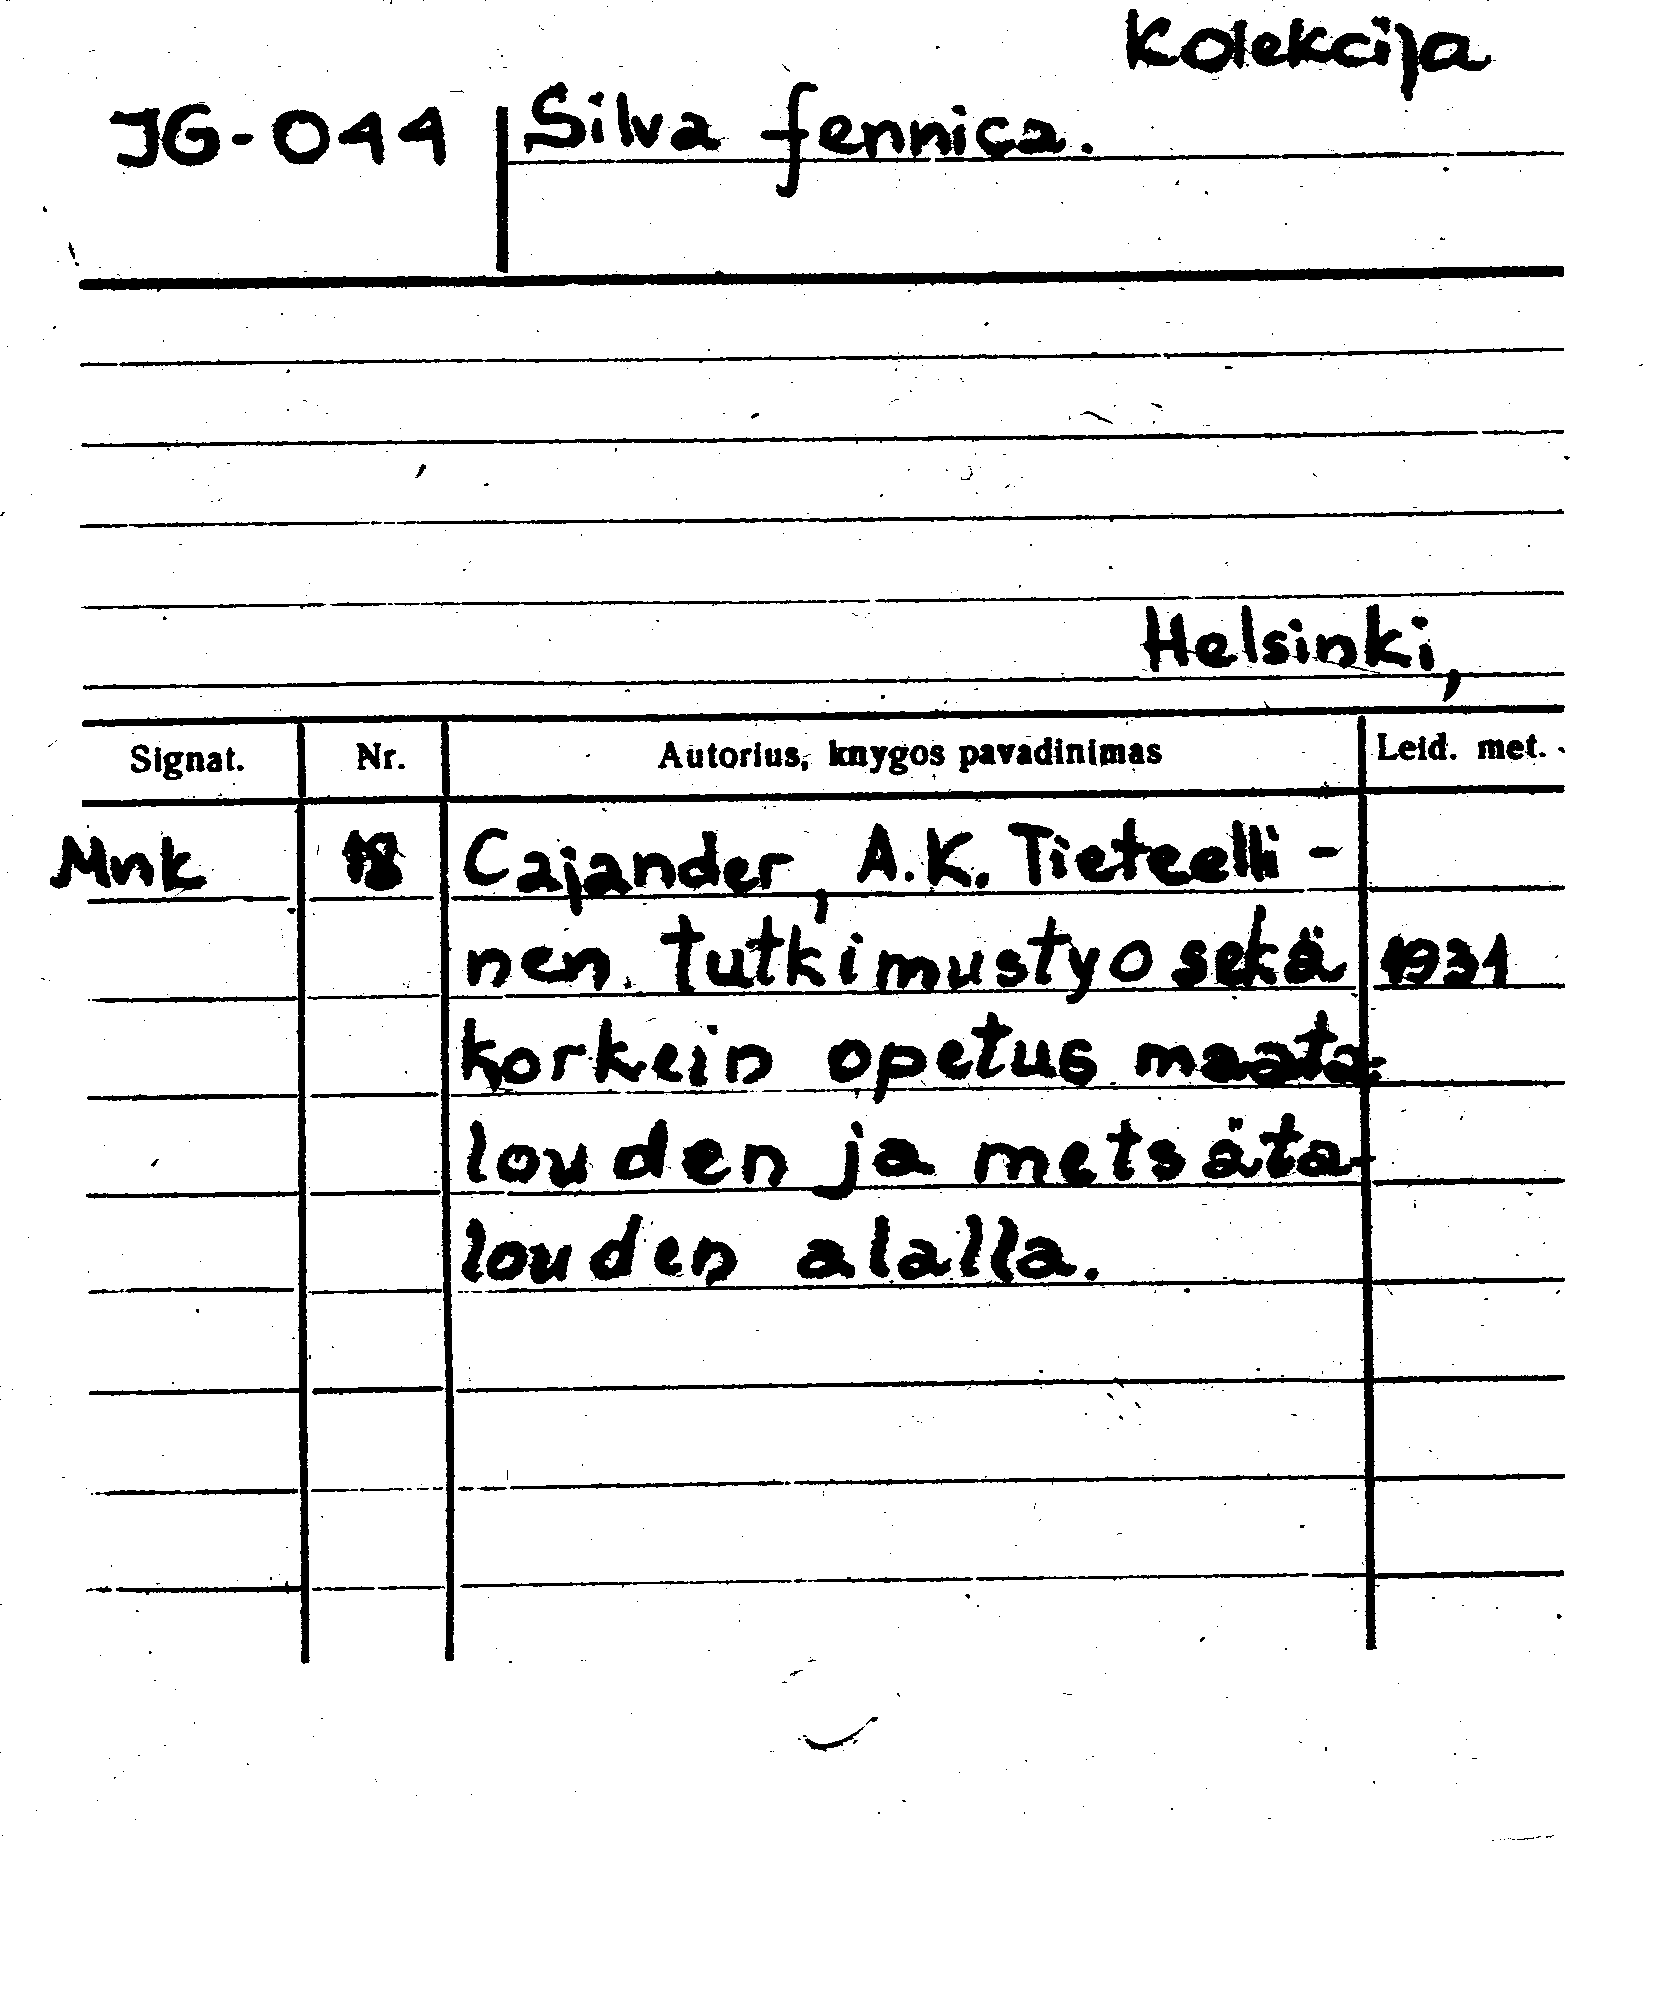 Kolekcija
JG-044 Silva fennica.
Helsinki,
Signat. Nr. Autorius, knygos pavadinimas Leid. met.
Mnk 18 Cajander, A.K. Tieteelli-
nen tutkimustyo sekä 1931
korkein opetus maata-
louden ja metsäta-
louden alalla.